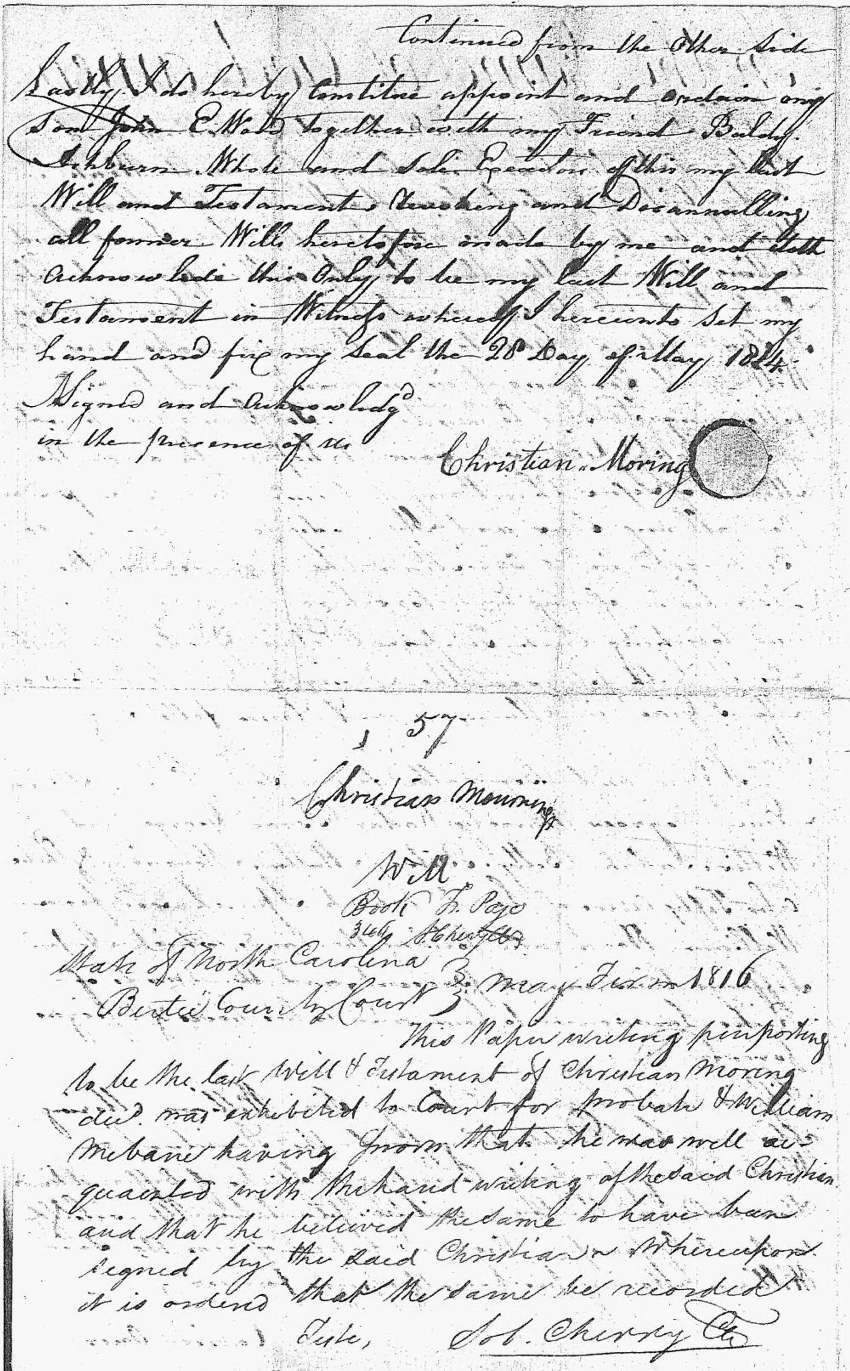 Continued from the other Side
Lastly I do hereby Constitue appoint and ordain my
Son John E. Wood together with my Friend Baldy
Ashburn Whole and Sole Executors of this my last
Will and Testament Revoking and Disannulling
all former Wills heretofore made by me and doth
acknowlede this Only to be my last Will and
Testament in Witness whereof I hereunto Set my
hand and fix my Seal the 28 Day of May 1814
Signed and acknowledgd
in the presence of us
Christian Moring
57
Christian Mournings
Will
Book F. Page
State of North Carolina
Bertie County Court } May Term 1816
This Paper writing purporting
to be the last Will & Testament of Christian Moring
decd. was exhibited to Court for probate & William
Mebane having sworn that he was well ac-
quainted with the hand writing of the said Christian
and that he believed the same to have been
signed by the said Christian Whereupon
it is ordered that the same be recorded
Teste, Sol. Cherry Clk